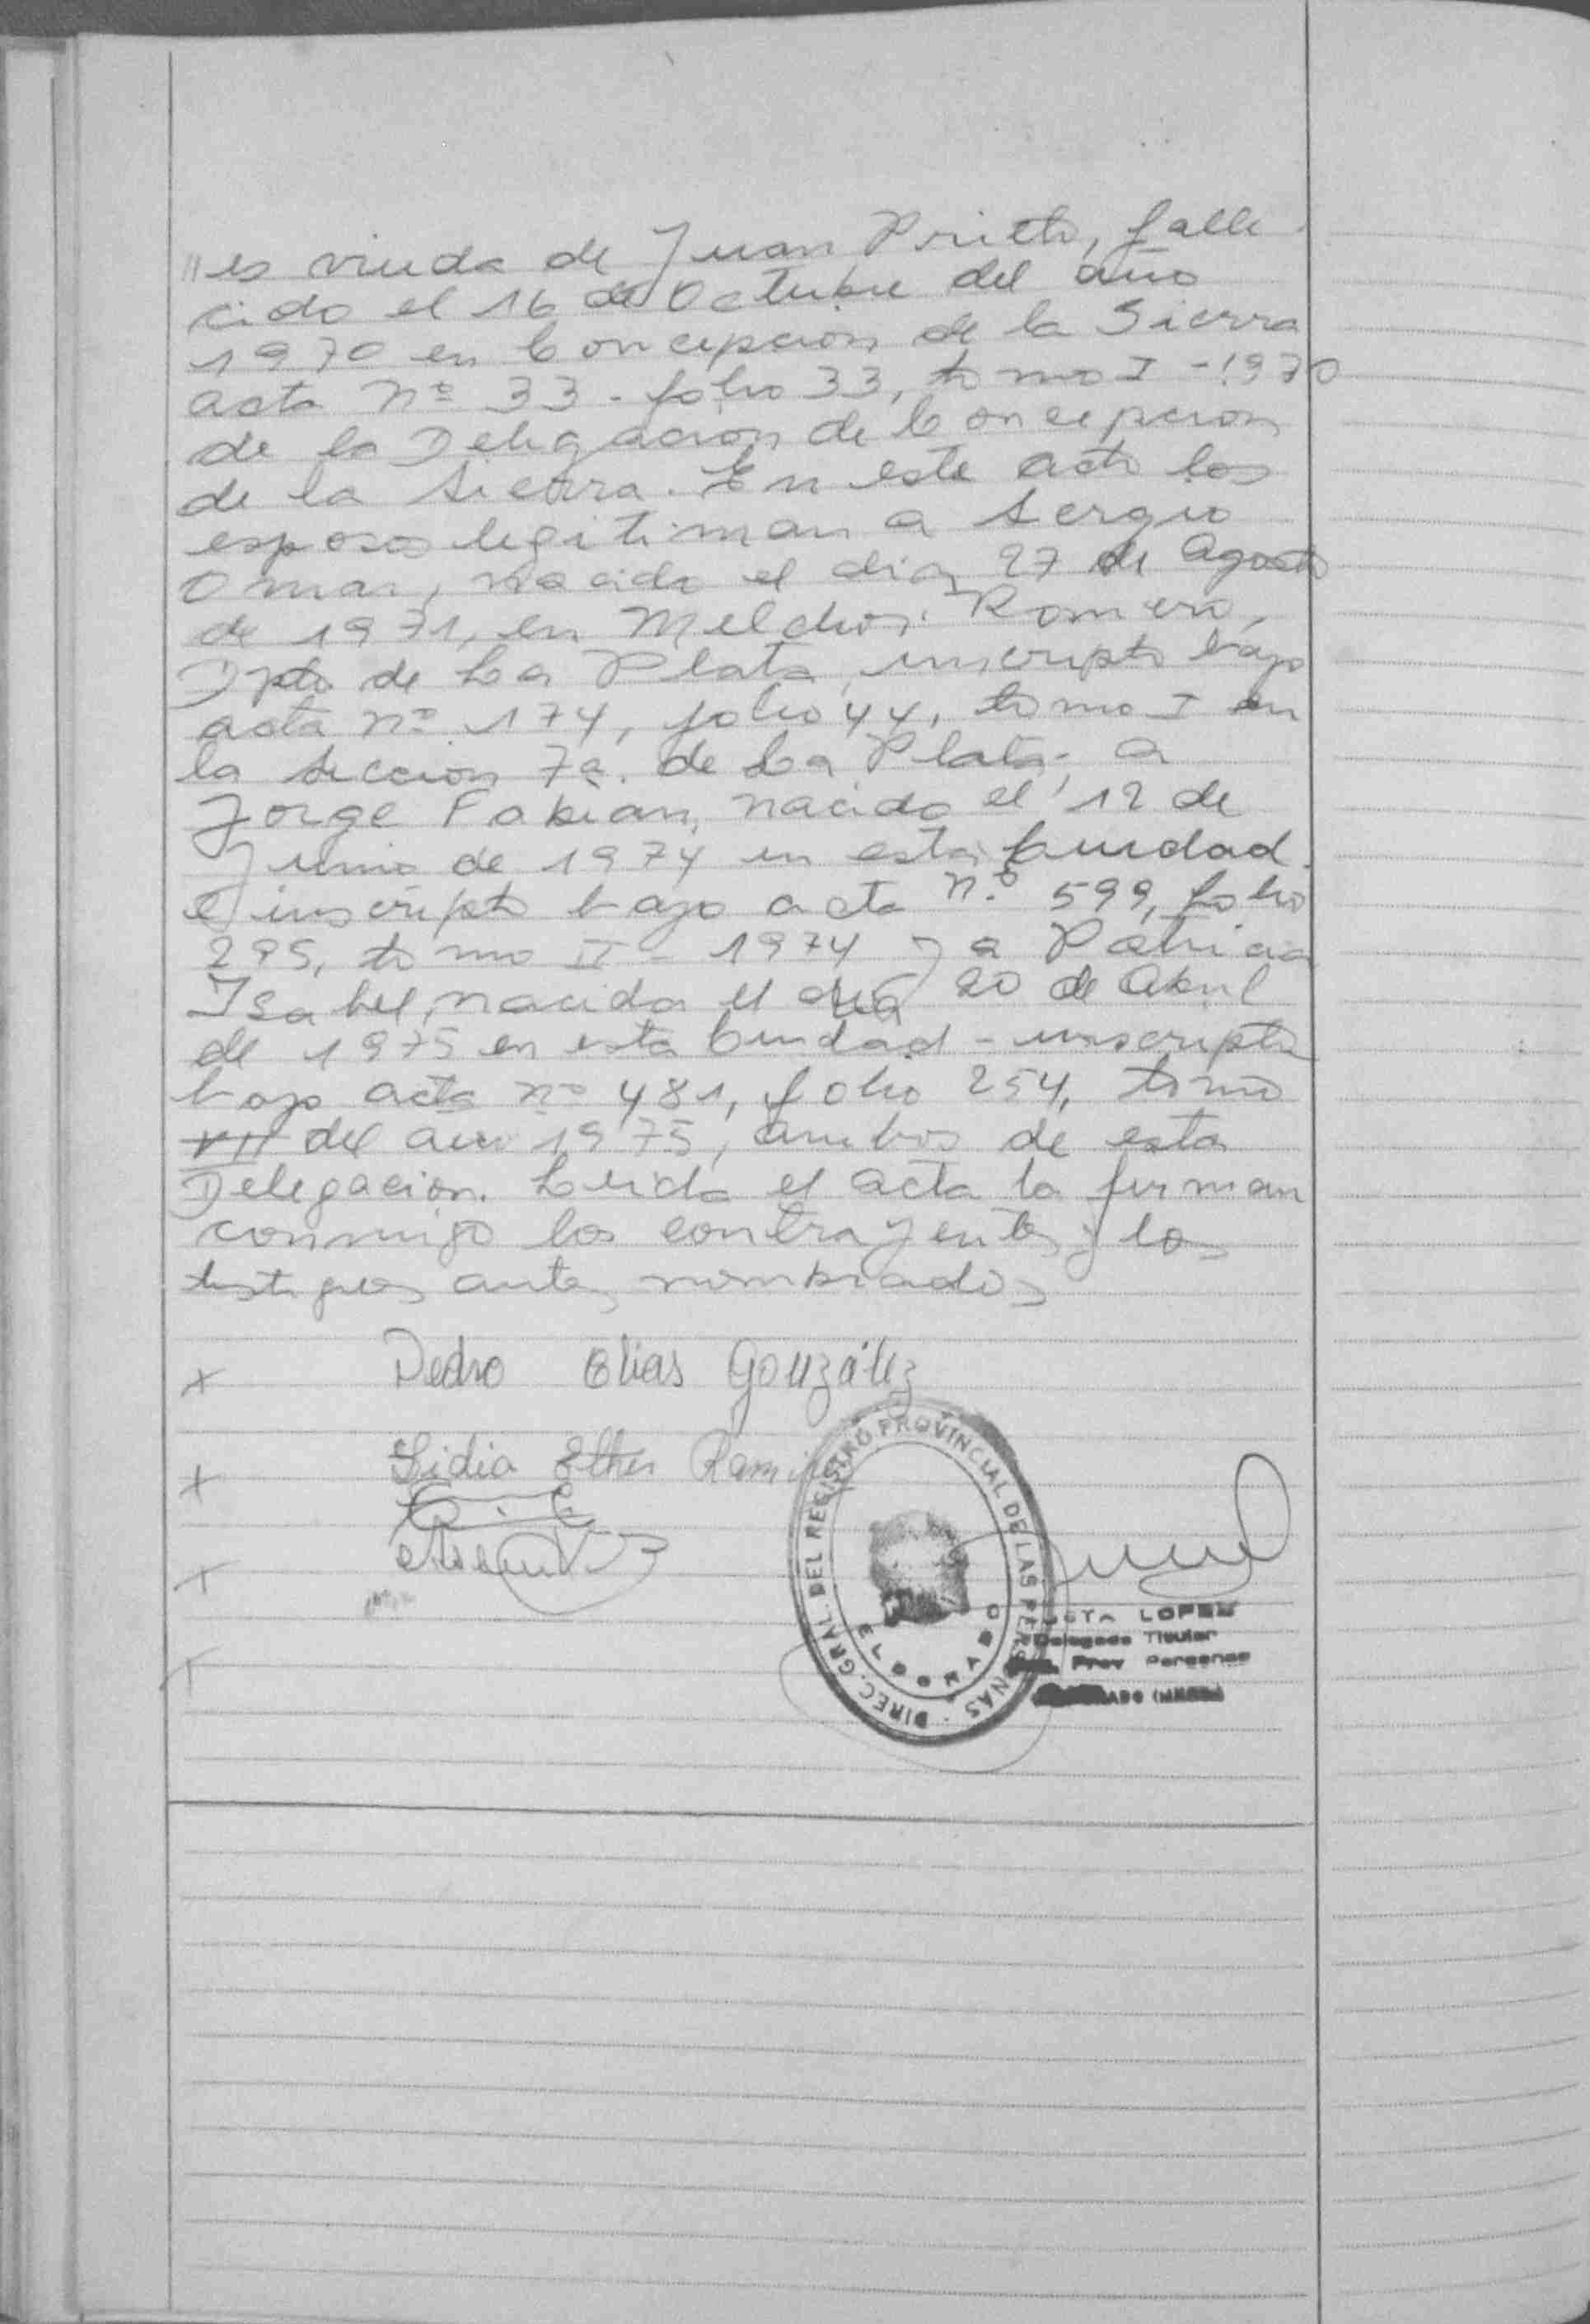 "es viuda de Juan Prieto, falle
cido el 16 de Octubre del año
1970 en Concepción de la Sierra
acta nº 33 - folio 33, tomo I - 1970
de la Delegación de Concepción
de la Sierra. En este acto los
esposos legitiman a Sergio
Omar, nacido el dia 27 de Agosto
de 1971, en Melchor Romero,
Dpto de La Plata, inscripto bajo
acta nº 174, folio 44, tomo I en
la Sección 7a. de La Plata; a
Jorge Fabian, nacido el 12 de
Junio de 1974 en esta Ciudad
e inscripto bajo acta nº 599, folio
295, tomo II - 1974 y a Patricia
Isabel, nacida el dia 20 de Abril
de 1975 en esta Ciudad - inscripta
bajo acta nº 481, folio 254, tomo
VII del año 1975, ambos de esta
Delegación. Leida el acta la firman
conmigo los contrayentes y los
testigos antes nombrados
Pedro Elias González
Lidia Esther
DIREC. GRAL. DEL REGISTRO PROVINCIAL DE LAS PERSONAS
ELDORADO
LOPEZ
Delegada Titular
Prov Personas